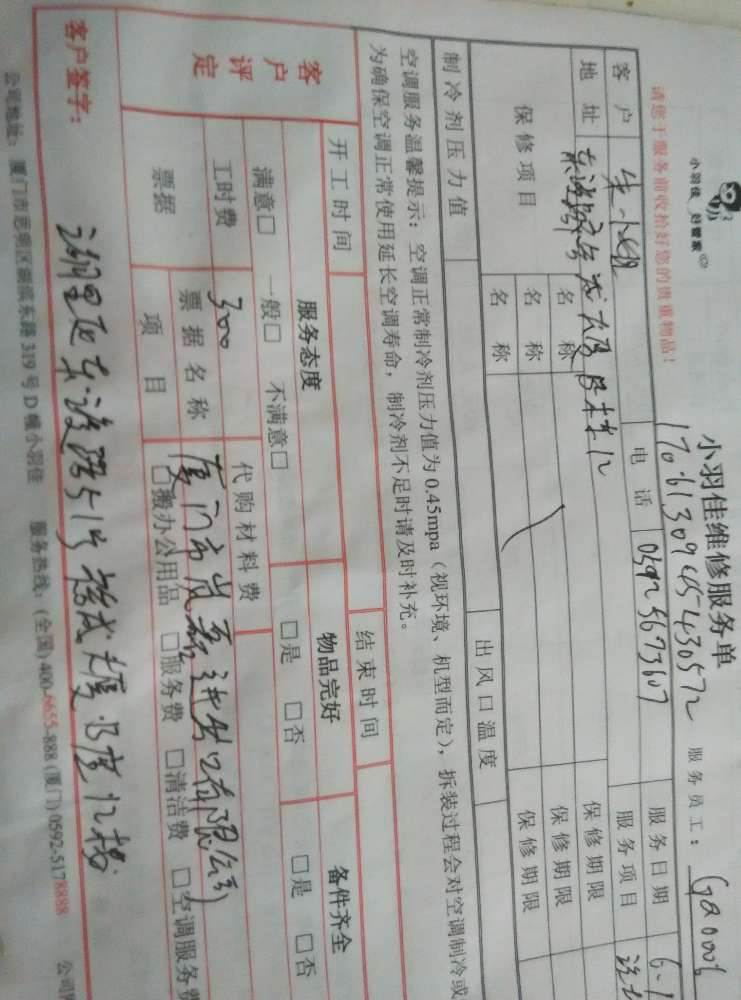 小羽佳 好管家
请您于服务前收拾好您的贵重物品!
小羽佳维修服务单
服务员工: Ga0006
客户 朱小姐 电话 0592 5673607 服务日期 6.
地址 服务项目
保修项目 名称 保修期限
名称 保修期限
名称 保修期限
制冷剂压力值 出风口温度
空调服务温馨提示:空调正常制冷剂压力值为0.45mpa(视环境、机型而定),拆装过程会对空调制冷或
为确保空调正常使用延长空调寿命,制冷剂不足时请及时补充。
开工时间 结束时间
客户评定 服务态度 物品完好 备件齐全
满意□ 一般□ 不满意□ □是 □否 □是 □否
工时费 300 代购材料费
票据 票据名称 厦门市 进出口有限公司
项目 □搬办公用品 □服务费 □清洁费 □空调服务费
客户签字: 湖里区 大厦B座12楼
公司地址:厦门市思明区湖滨东路319号D幢小羽佳 服务热线:(全国)400-6655-888(厦门)0592-5178888